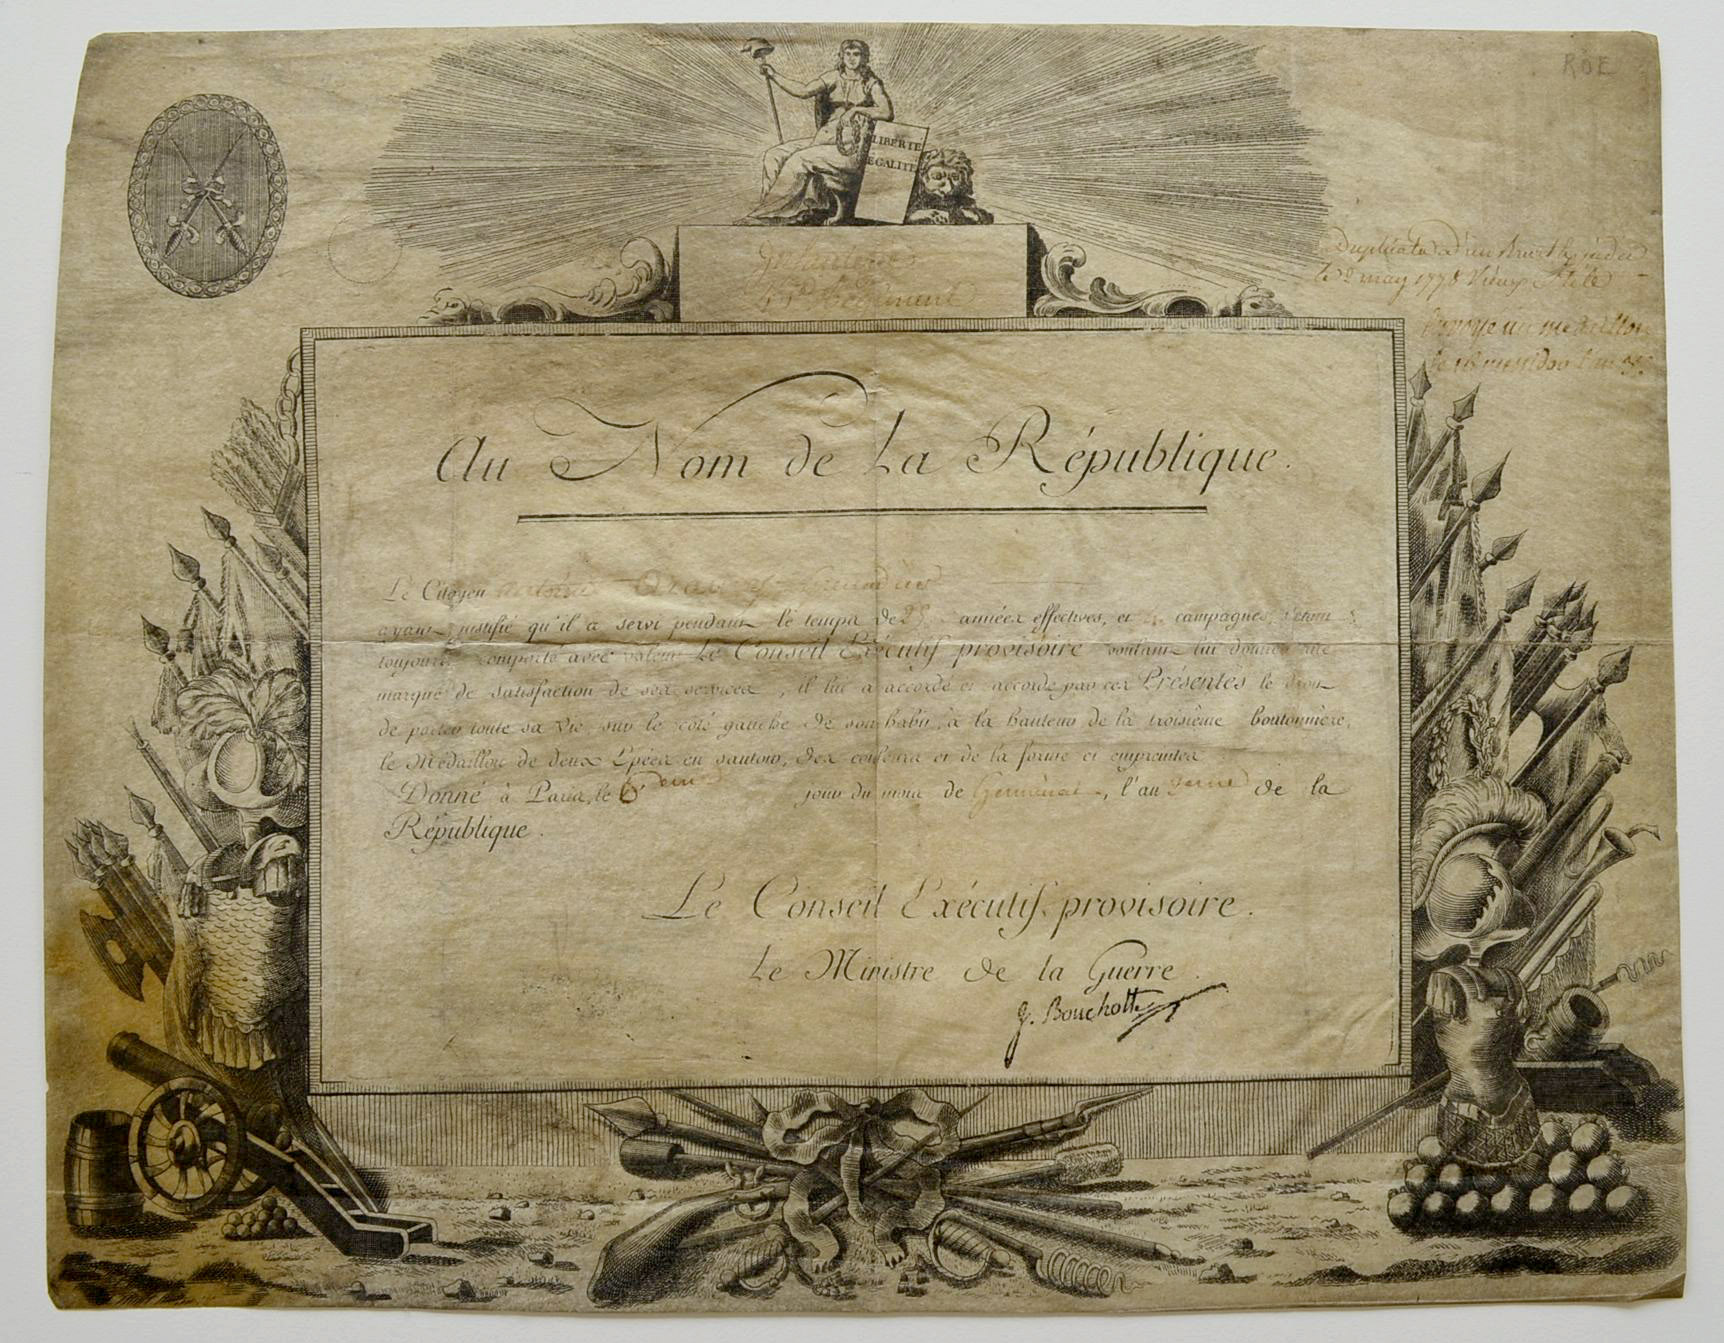 ROE
LIBERTÉ
ÉGALITÉ
45e Régiment
Duplicata d'un Brevet
le 2 may 1778 Vieux Stile
Envoyé un médaillon
le 16 messidor
Au Nom de La République.
Le Citoyen Antoine
ayant justifié qu'il a servi pendant le temps de années effectives, et campagnes, s'étant
toujours comporté avec valeur Le Conseil Exécutif provisoire voulant lui donner une
marque de satisfaction de ses services, il lui a accordé et accorde par ces Présentes le droit
de porter toute sa vie, sur le côté gauche de son habit, à la hauteur de la troisième boutonnière,
le Médaillon de deux Epées en sautoir, des couleurs et de la forme ci empreintes
Donné à Paris, le jour du mois de Germinal, l'an de la
République.
Le Conseil Exécutif provisoire.
Le Ministre de la Guerre.
J. Bouchotte